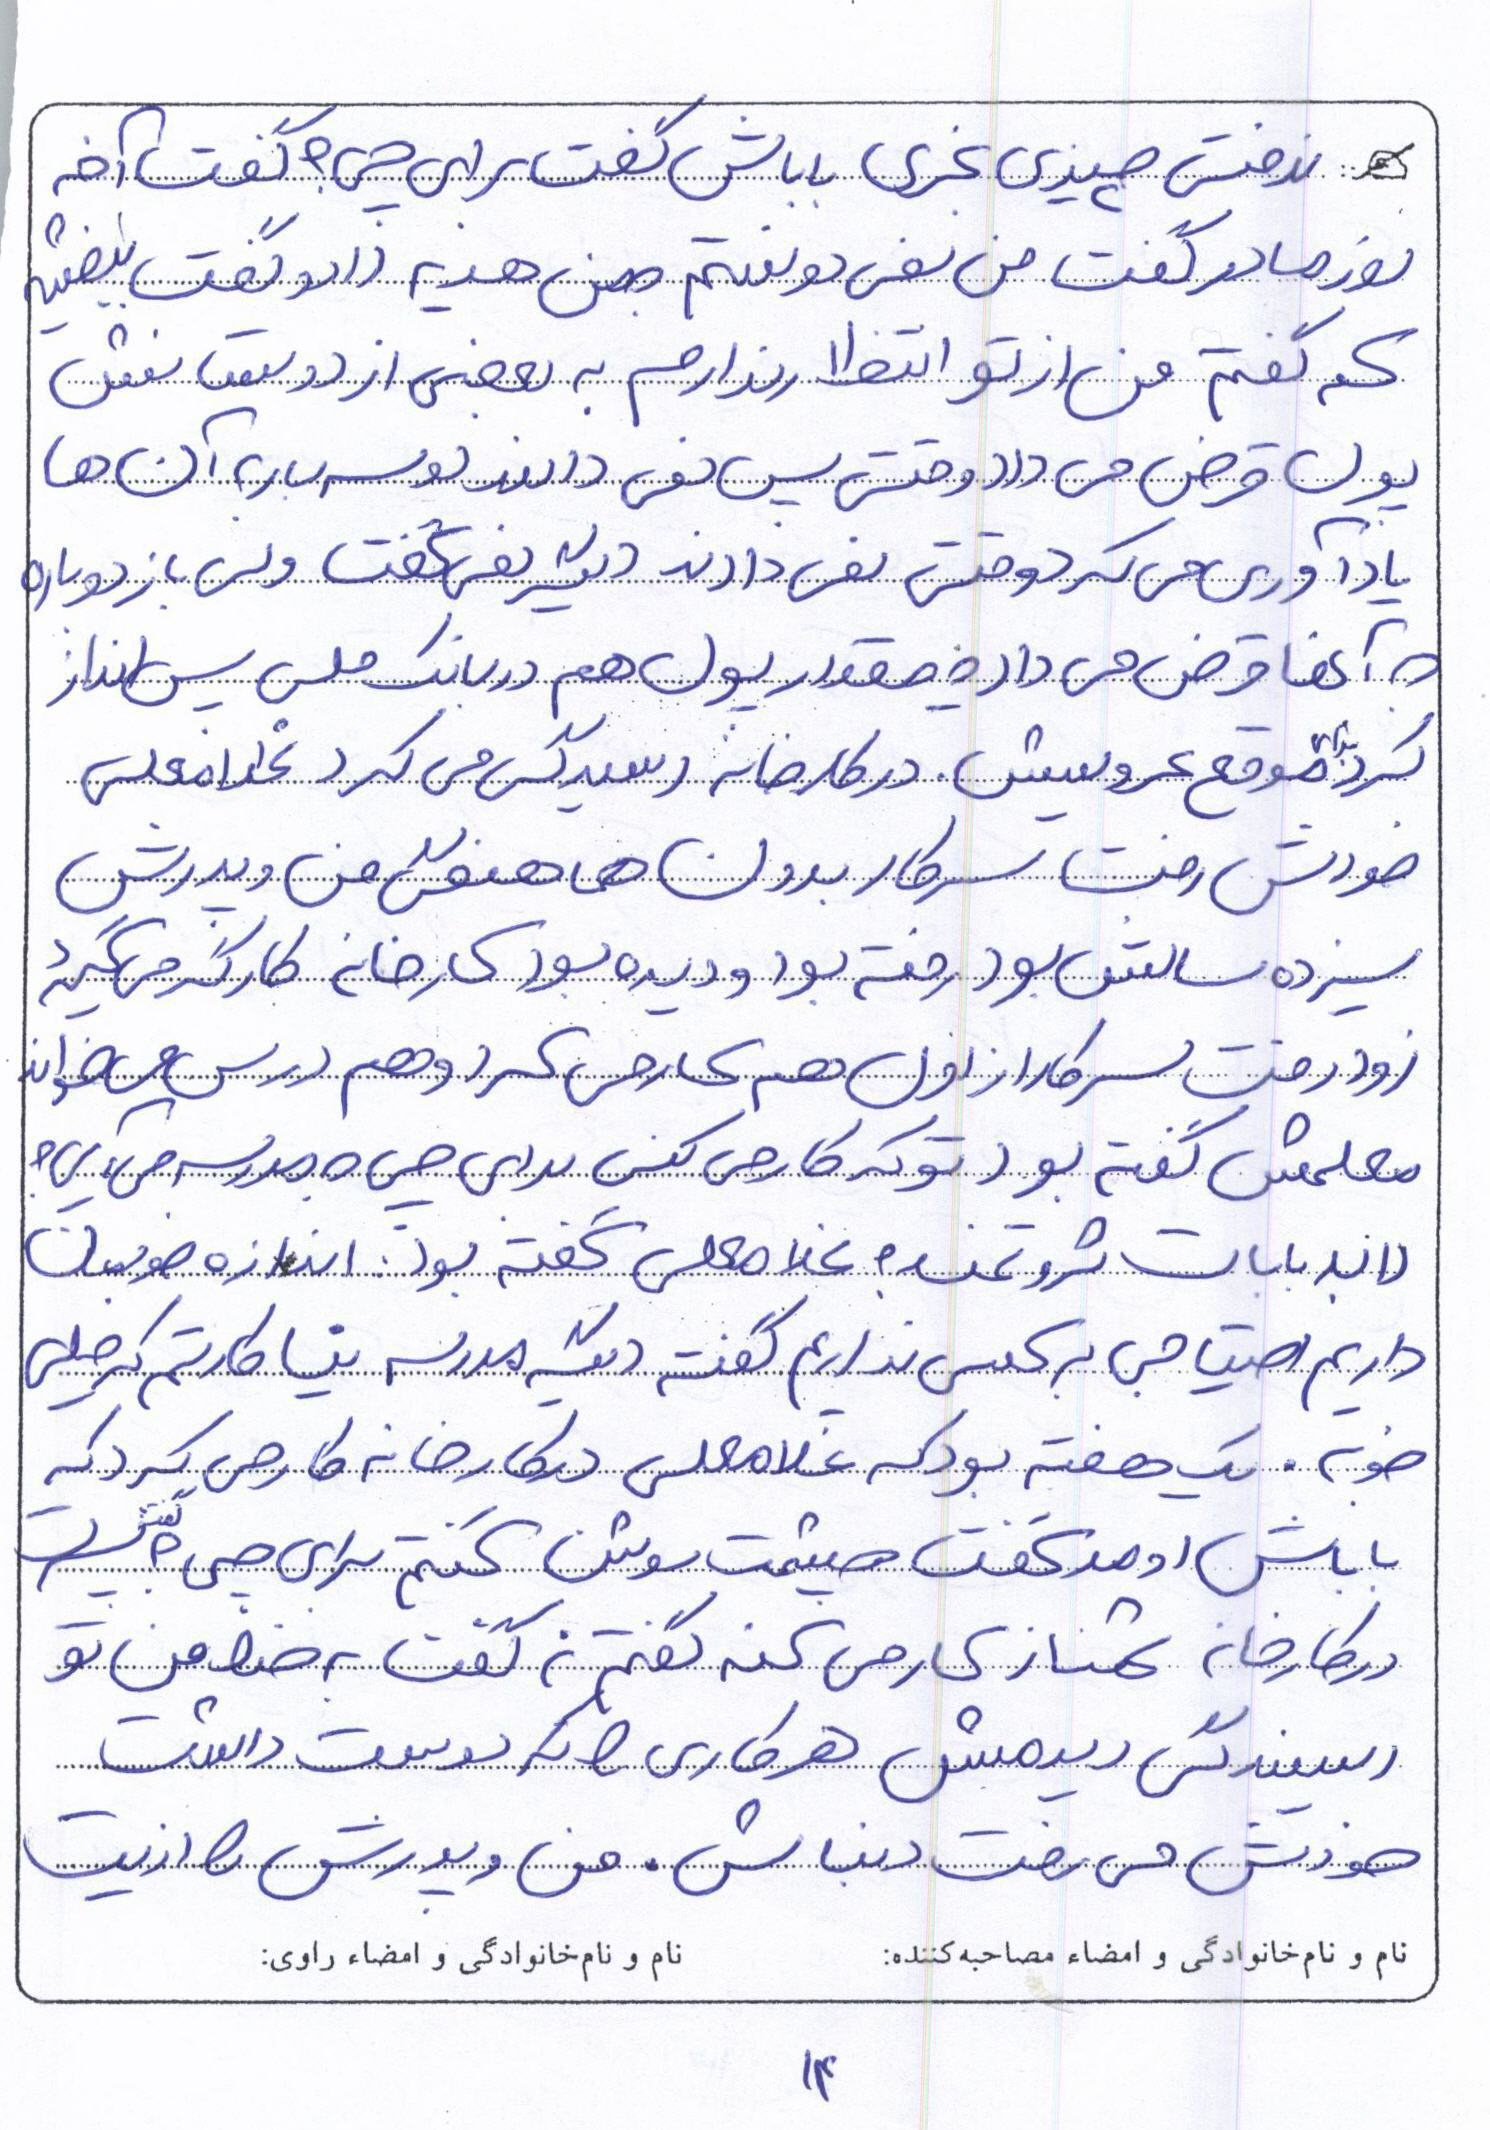 نرفتی چیزی بخری باباش گفت برای چی؟ گفت آخه
روز مادر گفت من نمی دونستم بمن هدیه داد و گفت ببخشید
که گفتم من از تو انتظار ندارم به بعضی از دوستانش
پول قرض می داد وقتی پس نمی دادند دو سه بار به آن ها
یادآوری می کرد وقتی نمی دادند دیگر نمی گفت ولی باز دوباره
به آنها قرض می داد چقدر پول هم در بانک ملی پس انداز
کرد برای موقع عروسیش. در کارخانه ریسندگی می کرد غلامعلی
خودش رفت سرکار بدون هماهنگی من و پدرش
سیزده سالش بود رفته بود و دیده بود کارخانه کارگر می گیرد
زود رفت سرکار از اول هم کار می کرد و هم درس می خواند
معلمش گفته بود تو که کار می کنی برای چی به مدرسه می آیی؟
لابد بابات ثروتمنده؟ غلامعلی گفته بود: اندازه خودمان
داریم احتیاجی به کسی نداریم گفته دیگه مدرسه نیا کارتم که خیلی
خوبه. یک هفته بود که غلامعلی در کارخانه کار می کرد که
باباش اومد گفت چشمت روشن گفتم برای چی؟ گفت پسرت
در کارخانه شهناز کار می کنه گفتم نه گفت به خدا من تو
ریسندگی دیدمش هر کاری را که دوست داشت
خودش می رفت دنبالش. من و پدرش را اذیت
نام و نام‌خانوادگی و امضاء مصاحبه‌کننده: نام و نام‌خانوادگی و امضاء راوی:
۱۴